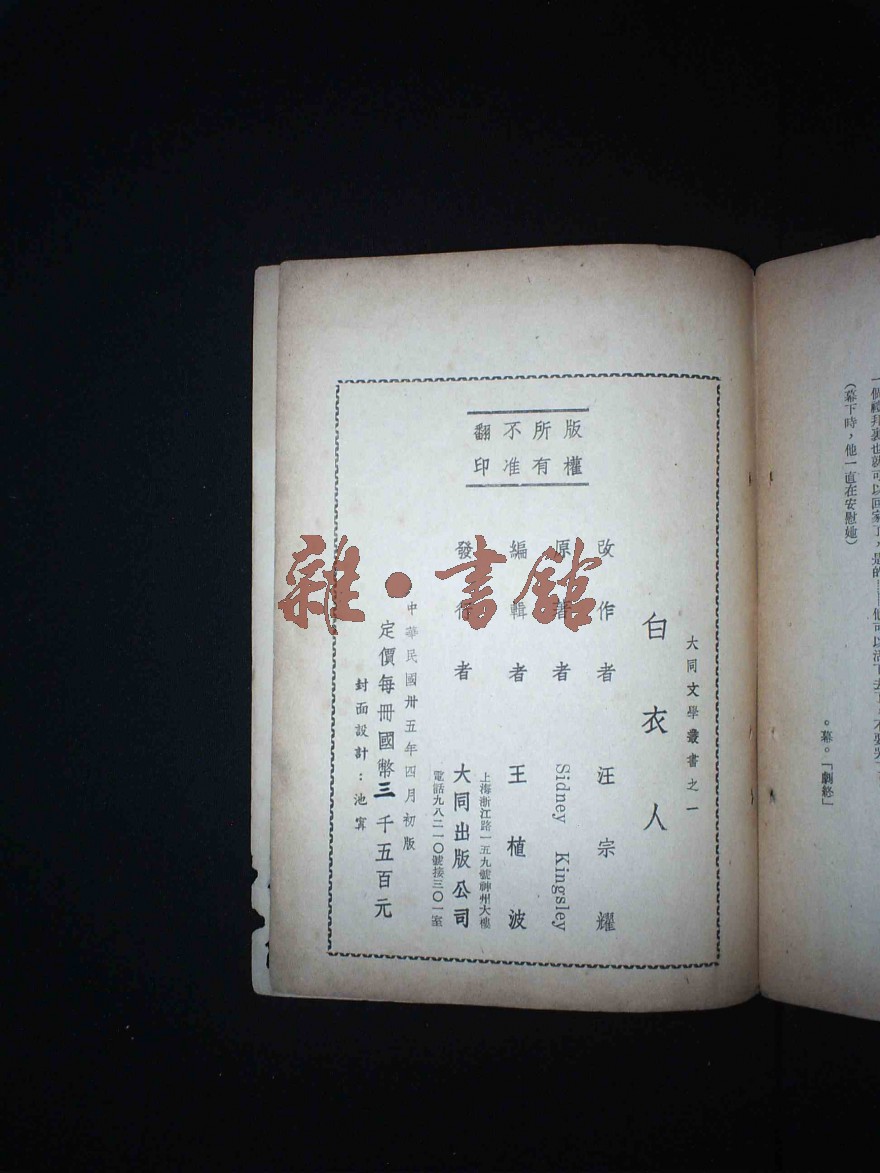 一個禮拜裏也就可以回家了，是的……他可以活下去了，不要哭
（幕下時，他一直在安慰她）
。幕。「劇終」
版權
所有
不准
翻印
大同文學叢書之一
白衣人
改作者 汪宗耀
原著者 Sidney Kingsley
編輯者 王植波
上海浙江路一五九號神州大樓
發行者 大同出版公司
電話九八二一〇號接三〇一室
中華民國卅五年四月初版
定價每冊國幣三千五百元
封面設計：池寧
雜·書館